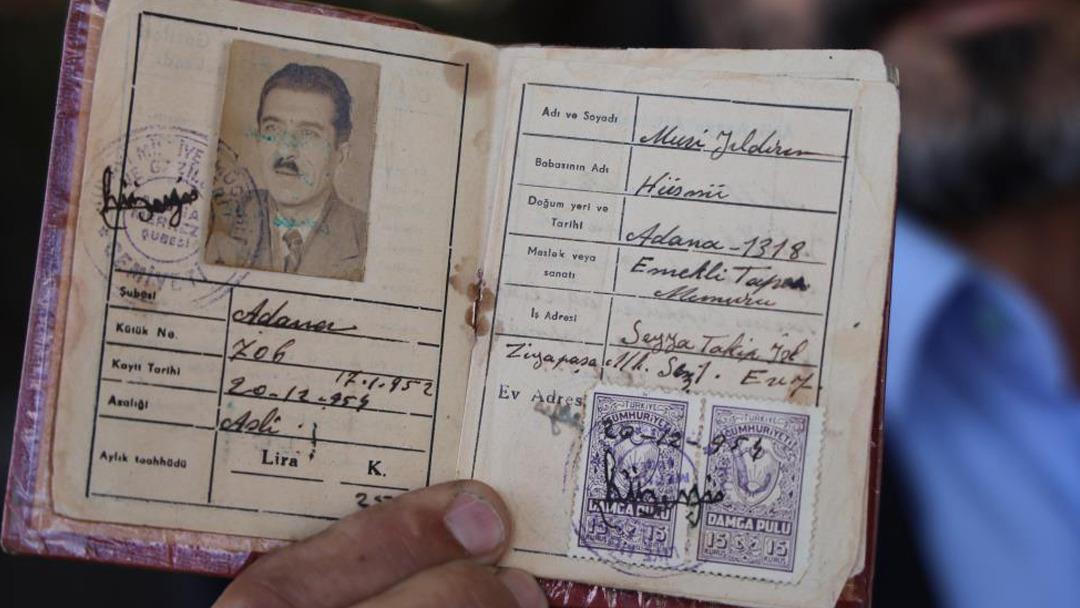 Şubesi Adana
Kütük No. 706
17.1.952
Kayıt Tarihi 20-12-954
Azalığı Asli
Aylık taahhüdü Lira K.
Adı ve Soyadı Musi Yıldırım
Babasının Adı Hüsnü
Doğum yeri ve Tarihi Adana-1318
Meslek veya sanatı Emekli Tapu
Memuru
İş Adresi
Ziyapaşa
Ev Adres
20-12-954
TÜRKİYE
CUMHURİYETİ
DAMGA PULU
15 15
KURUŞ
TÜRKİYE
CUMHURİYETİ
DAMGA PULU
15 15
KURUŞ
MERKEZ
ŞUBESİ
CEMİYETİ